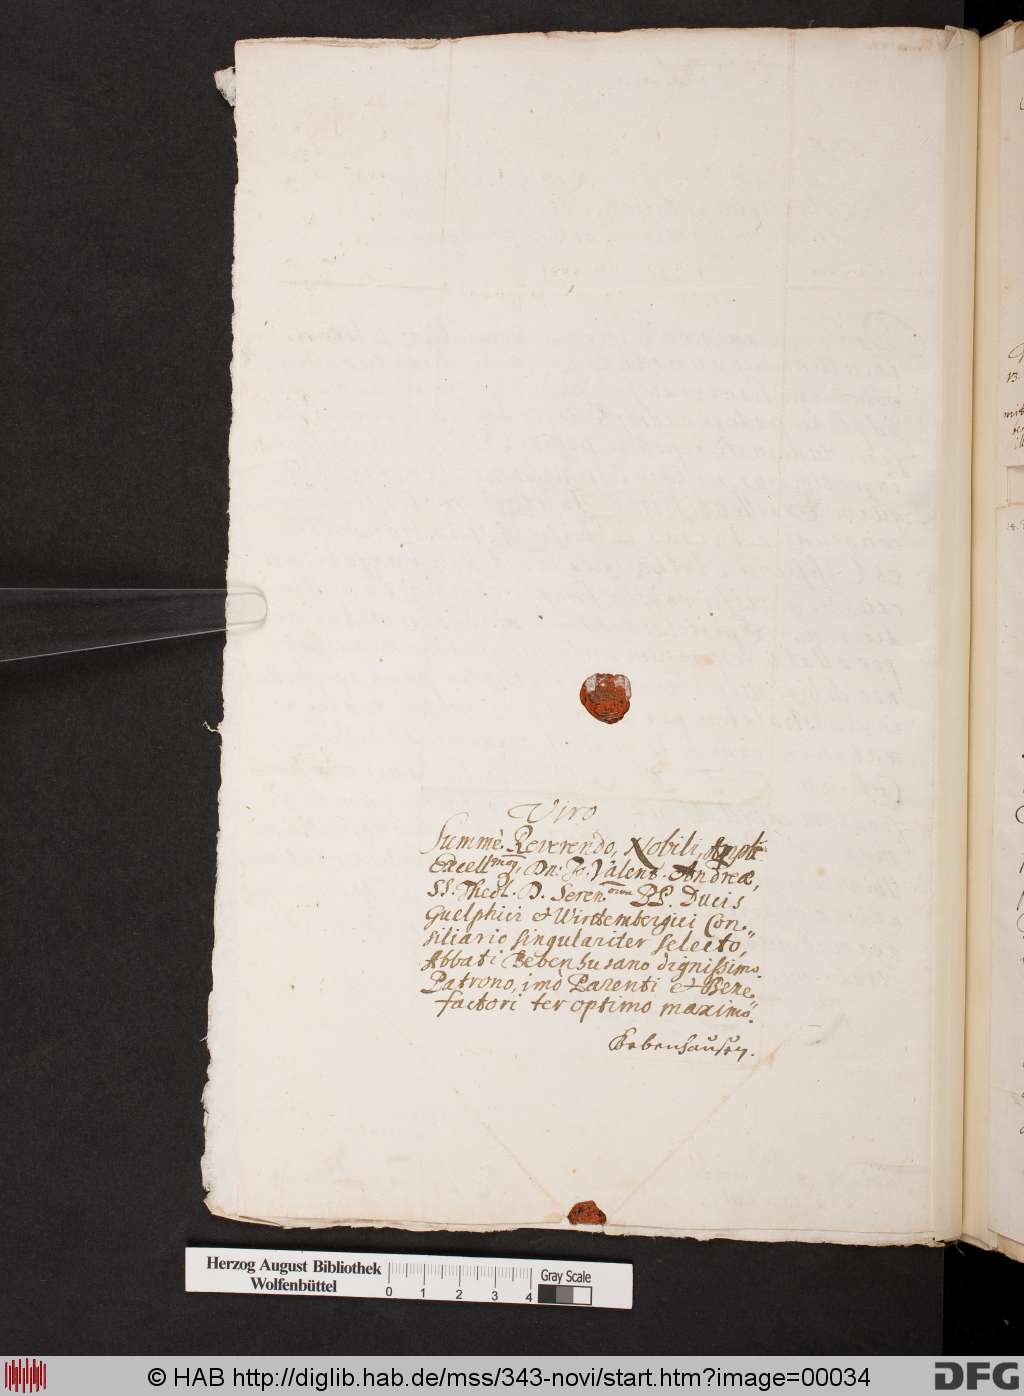 Viro
Summè Reverendo, Nobili, Ampl:
Excell.mo, Dn: Jo. Valent. Andreæ,
SS. Theol. D. Seren.orum PP. Ducis
Guelphici et Wirttembergici Con-
siliario singulariter selecto,
Abbati Bebenhusano dignissimo.
Patrono, imò Parenti et Bene-
factori ter optimo maximo.
Bebenhausen.
Herzog August Bibliothek
Wolfenbüttel
0 1 2 3 4
Gray Scale
© HAB http://diglib.hab.de/mss/343-novi/start.htm?image=00034
DFG